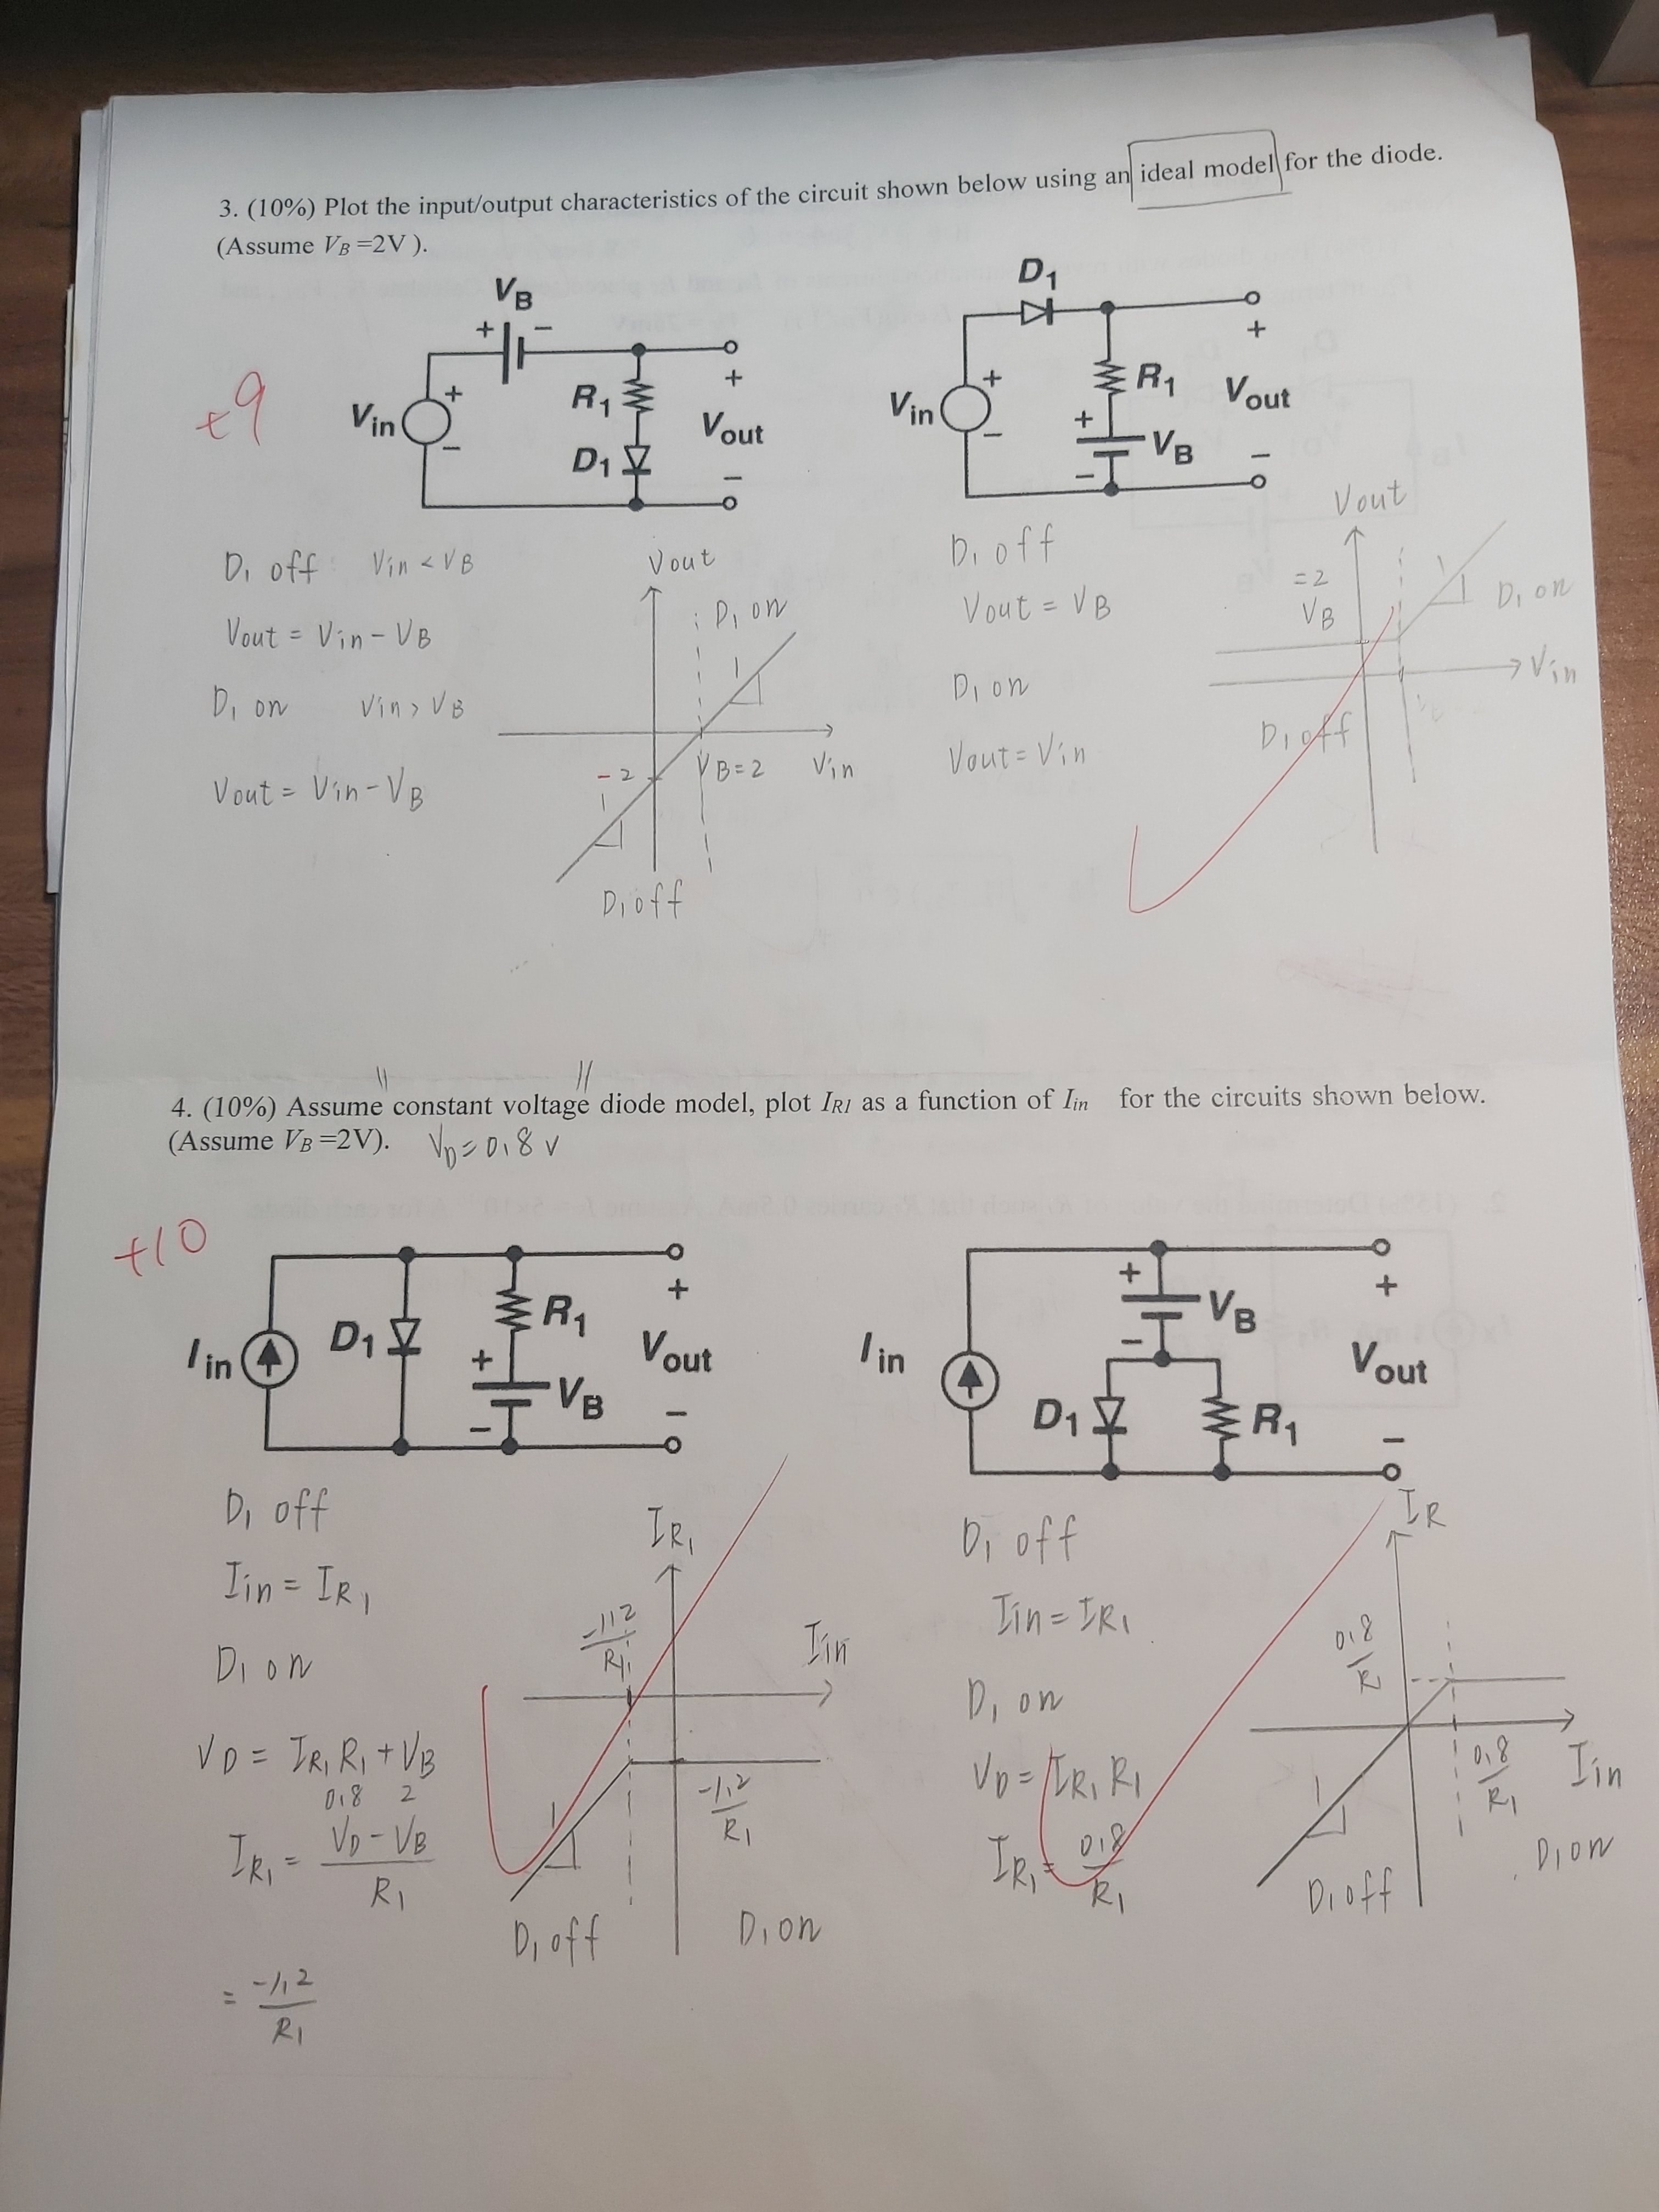 3. (10%) Plot the input/output characteristics of the circuit shown below using an ideal model for the diode.
(Assume VB =2V ).
+9
VB
+ −
Vin
+
−
R1
D1
+
Vout
−
D1
Vin
+
−
R1
+
VB
−
+
Vout
−
D1 off Vin < VB
Vout = Vin - VB
D1 on Vin > VB
Vout = Vin - VB
Vout
D1 on
1
1
-2
VB=2
Vin
1
D1 off
D1 off
Vout = VB
D1 on
Vout = Vin
Vout
=2
VB
1
1
D1 on
Vin
D1 off
4. (10%) Assume constant voltage diode model, plot IR1 as a function of Iin for the circuits shown below.
(Assume VB =2V). VD=0.8 V
+10
Iin
D1
R1
+
VB
−
+
Vout
−
Iin
+
VB
−
D1
R1
+
Vout
−
D1 off
Iin = IR1
D1 on
VD = IR1 R1 + VB
0.8 2
IR1 = VD - VB
R1
= -1.2
R1
IR1
-1.2
R1
Iin
-1.2
R1
1
D1 off
D1 on
D1 off
Iin = IR1
D1 on
VD = IR1 R1
IR1 = 0.8
R1
IR
0.8
R1
0.8
R1
Iin
1
D1 off
D1 on